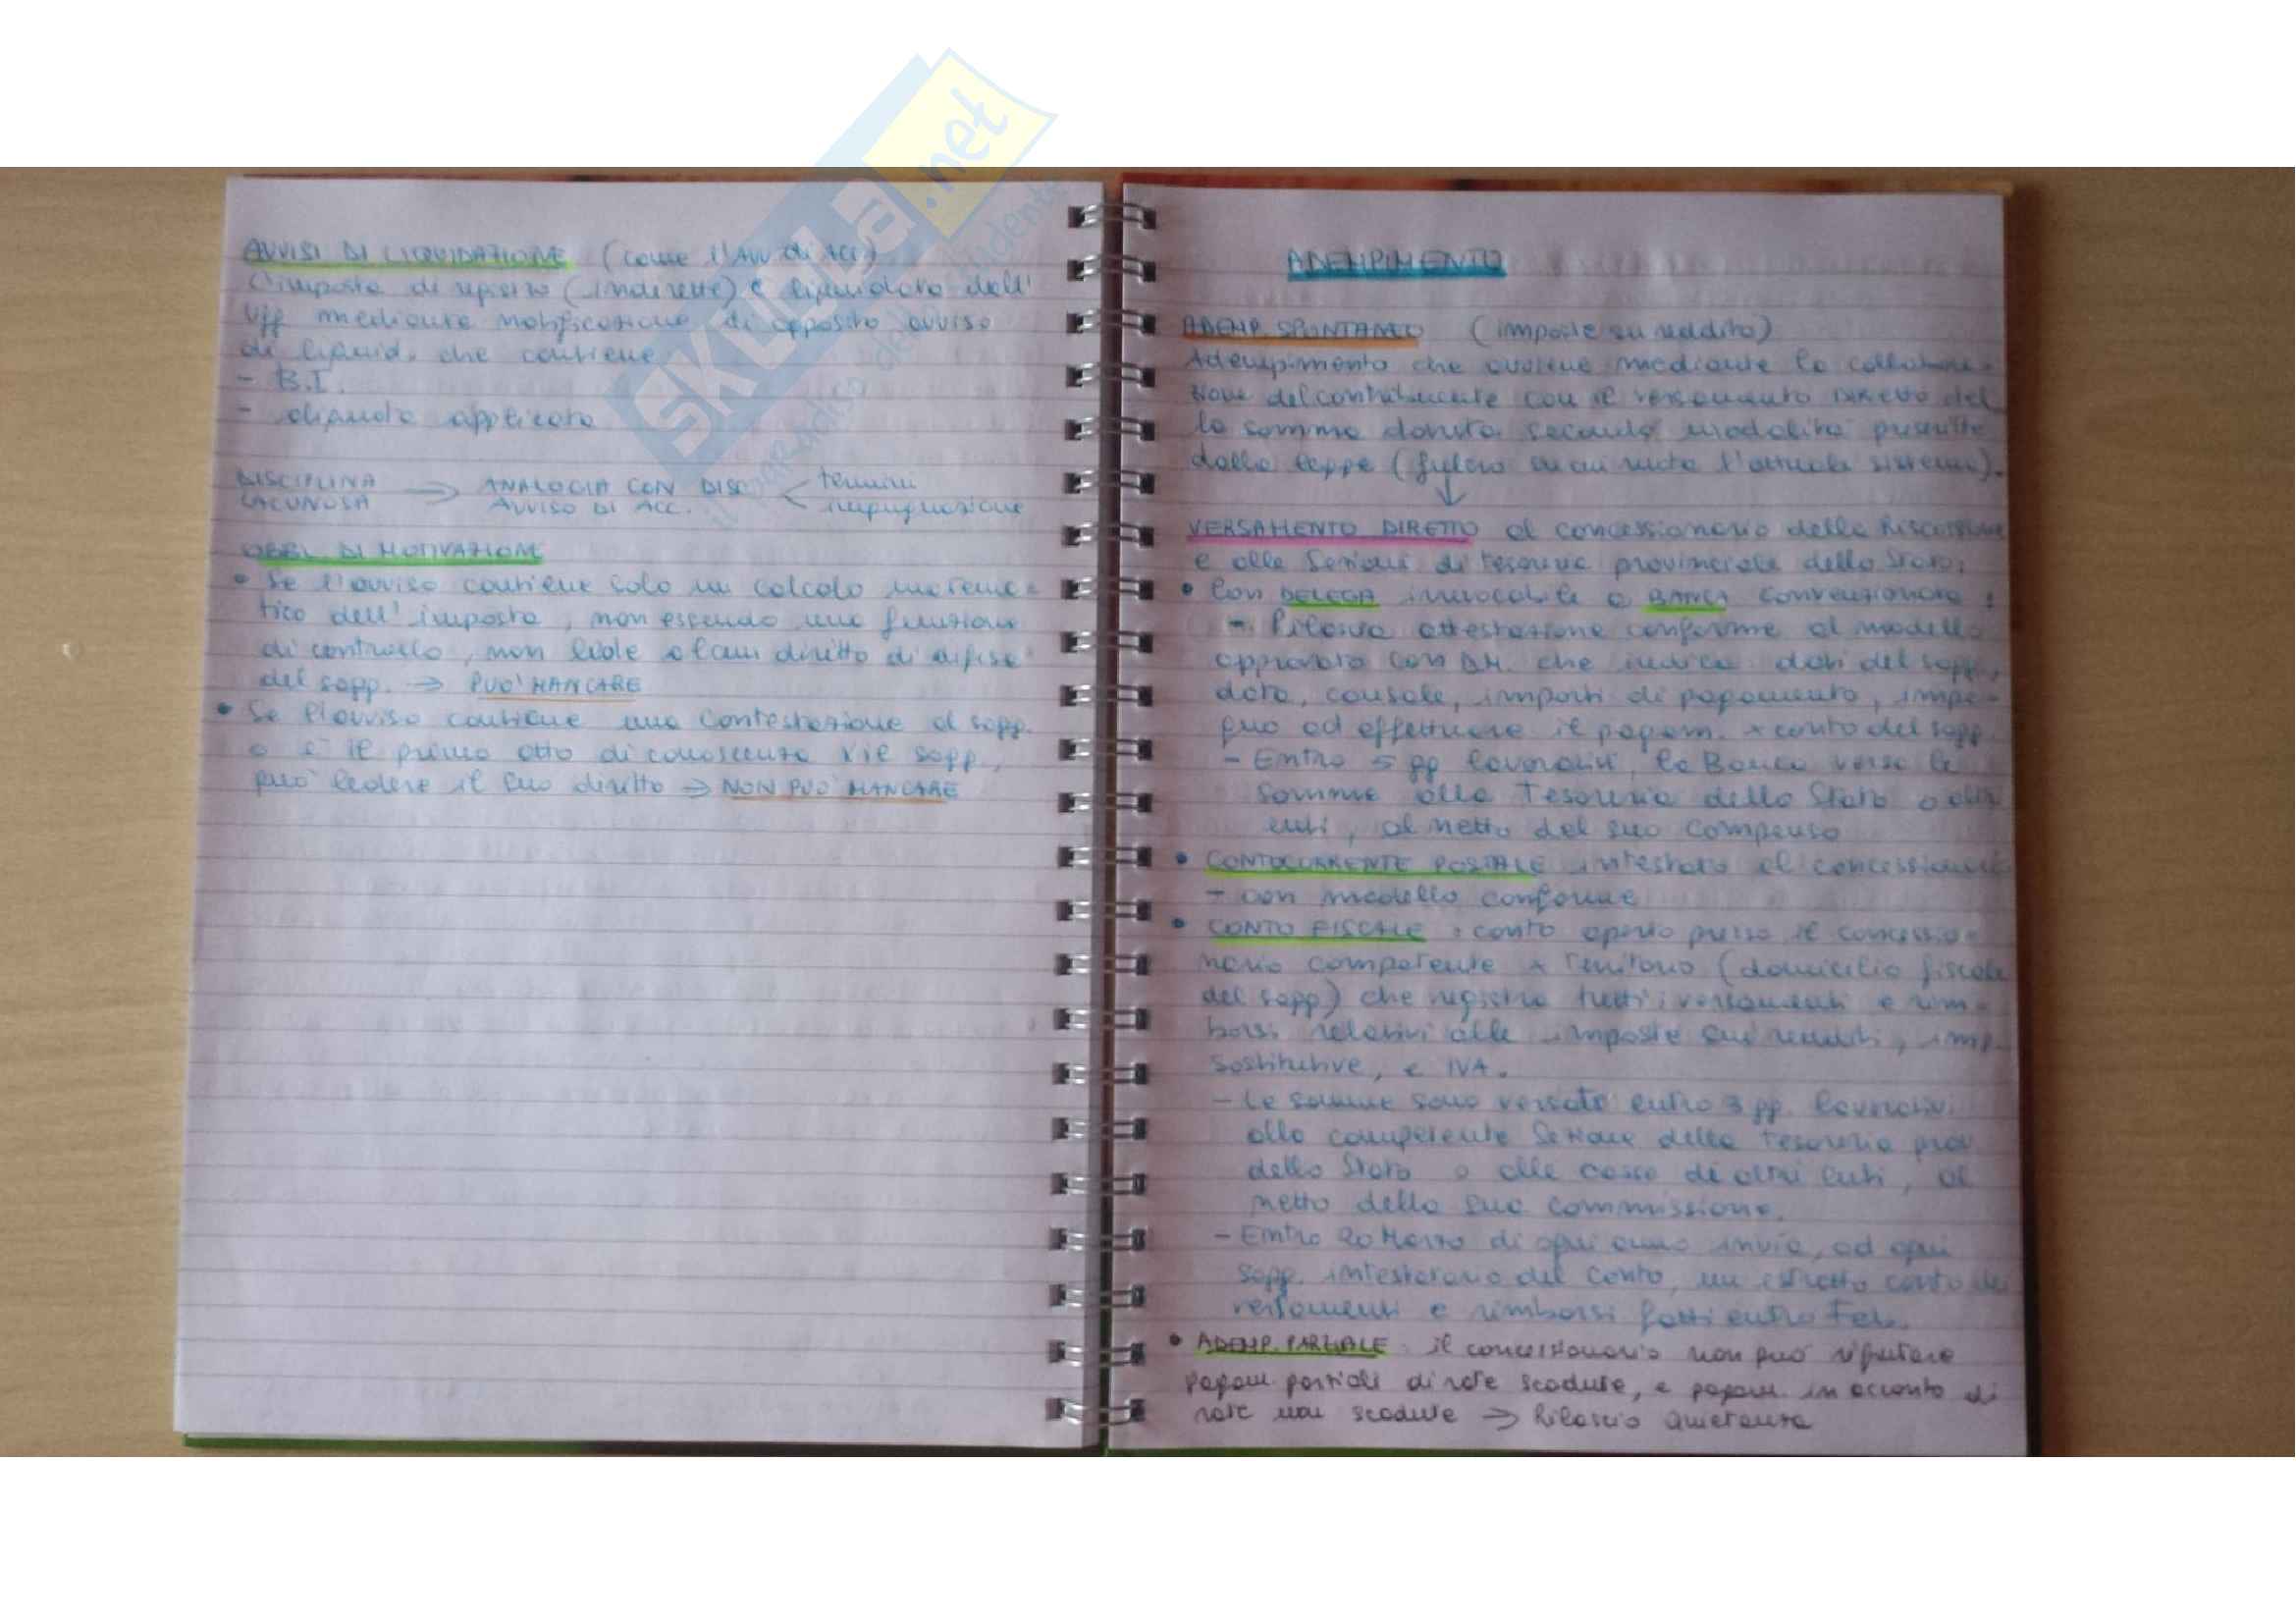 AVVISI DI LIQUIDAZIONE (come l'Avv di Acc)
L'imposta di registro (indirette) è liquidata dall'
Uff mediante notificazione di apposito avviso
di liquid. che contiene
- B.I.
- aliquota applicata
DISCIPLINA LACUNOSA → ANALOGIA CON DISC AVVISO DI ACC. < termini
impugnazione
OBBL. DI MOTIVAZIONE
• Se l'avviso contiene solo un calcolo matema-
tico dell'imposta, non essendo una funzione
di controllo, non lede alcun diritto di difesa
del sogg. → PUO' MANCARE
• Se l'avviso contiene una contestazione al sogg.
o è il primo atto di conoscenza x il sogg,
può ledere il suo diritto → NON PUO' MANCARE
ADEMPIMENTO
ADEMP. SPONTANEO (imposte su reddito)
Adempimento che avviene mediante la collabora-
zione del contribuente con il versamento DIRETTO del
la somma dovuta secondo modalità prescritte
dalla legge (fulcro su cui ruota l'attuale sistema).
↓
VERSAMENTO DIRETTO al concessionario della Riscossione
e alle Sezioni di Tesoreria provinciale dello Stato:
• Con DELEGA irrevocabile a BANCA convenzionata:
- Rilascia attestazione conforme al modello
approvato con D.M. che indica dati del sogg,
data, causale, importi di pagamento, impe-
gno ad effettuare il pagam. x conto del sogg.
- Entro 5 gg lavorativi, la Banca versa le
somme alla Tesoreria dello Stato o altri
enti, al netto del suo compenso
• CONTOCORRENTE POSTALE intestato al concessionario
- con modello conforme
• CONTO FISCALE: conto aperto presso il concessio-
nario competente x territorio (domicilio fiscale
del sogg) che registra tutti i versamenti e rim-
borsi relativi alle imposte sui redditi, imp
sostitutive, e IVA.
- Le somme sono versate entro 3 gg. lavorativi
alla competente Sezione della Tesoreria prov
dello Stato o alle casse di altri enti, al
netto della sua commissione.
- Entro 20 Marzo di ogni anno invia, ad ogni
sogg. intestatario del conto, un estratto conto dei
versamenti e rimborsi fatti entro Feb.
• ADEMP. PARZIALE: il concessionario non può rifiutare
pagam. parziali di rate scadute, e pagam. in acconto di
rate non scadute → Rilascio Quietanza
SKUOLA.net